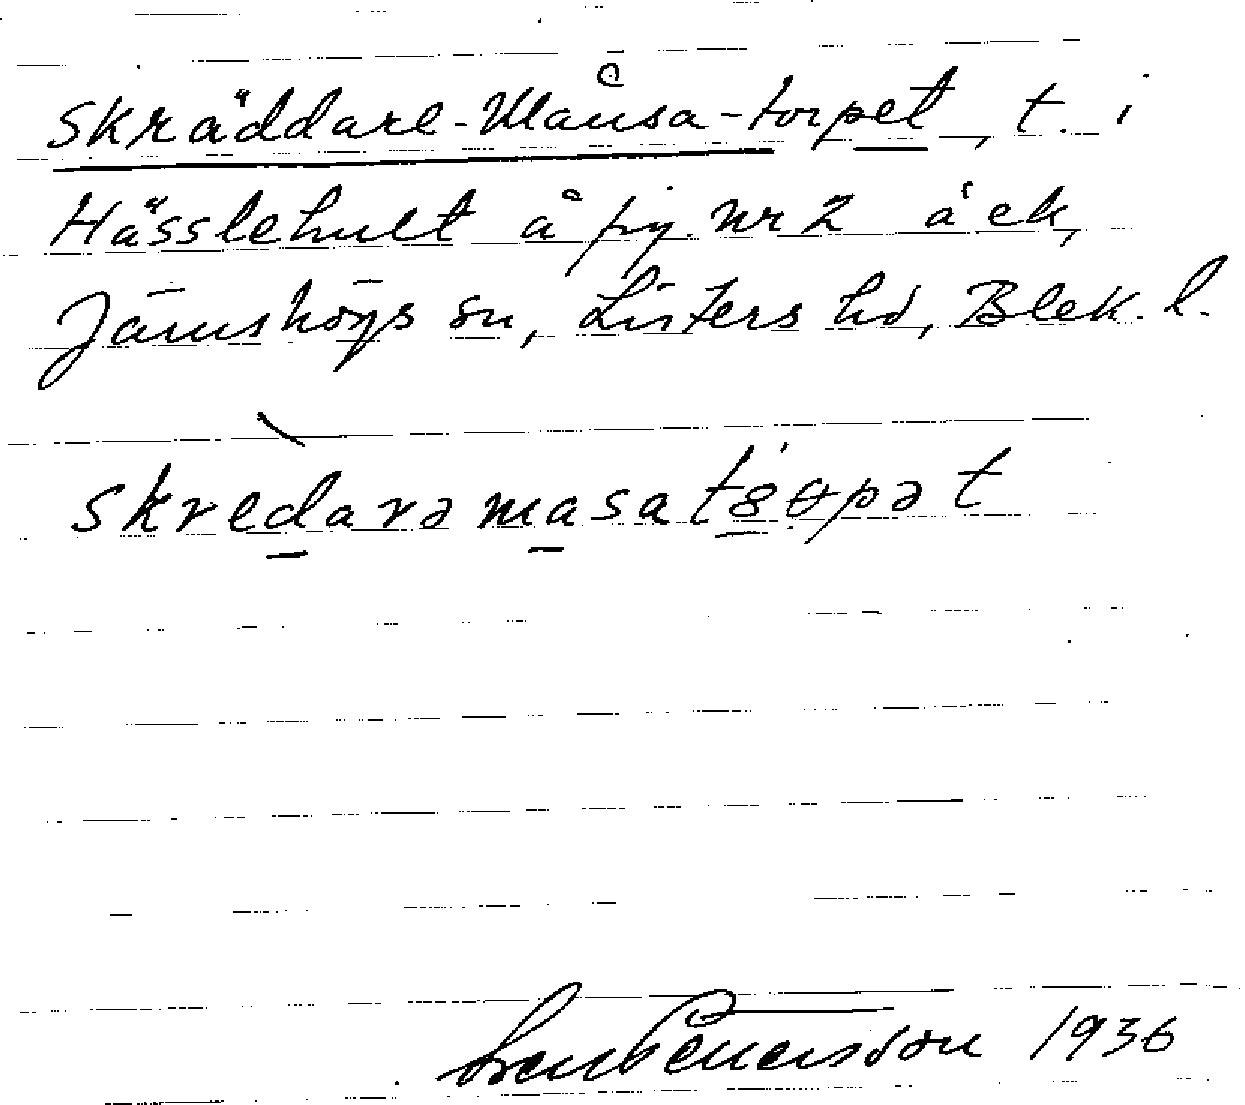 Skräddare-Månsa-torpet, t. i
Hässlehult å fig. nr 2 å ek,
Jämshögs sn, Listers hd, Blek. l.
skredarə masatɵpət
1936